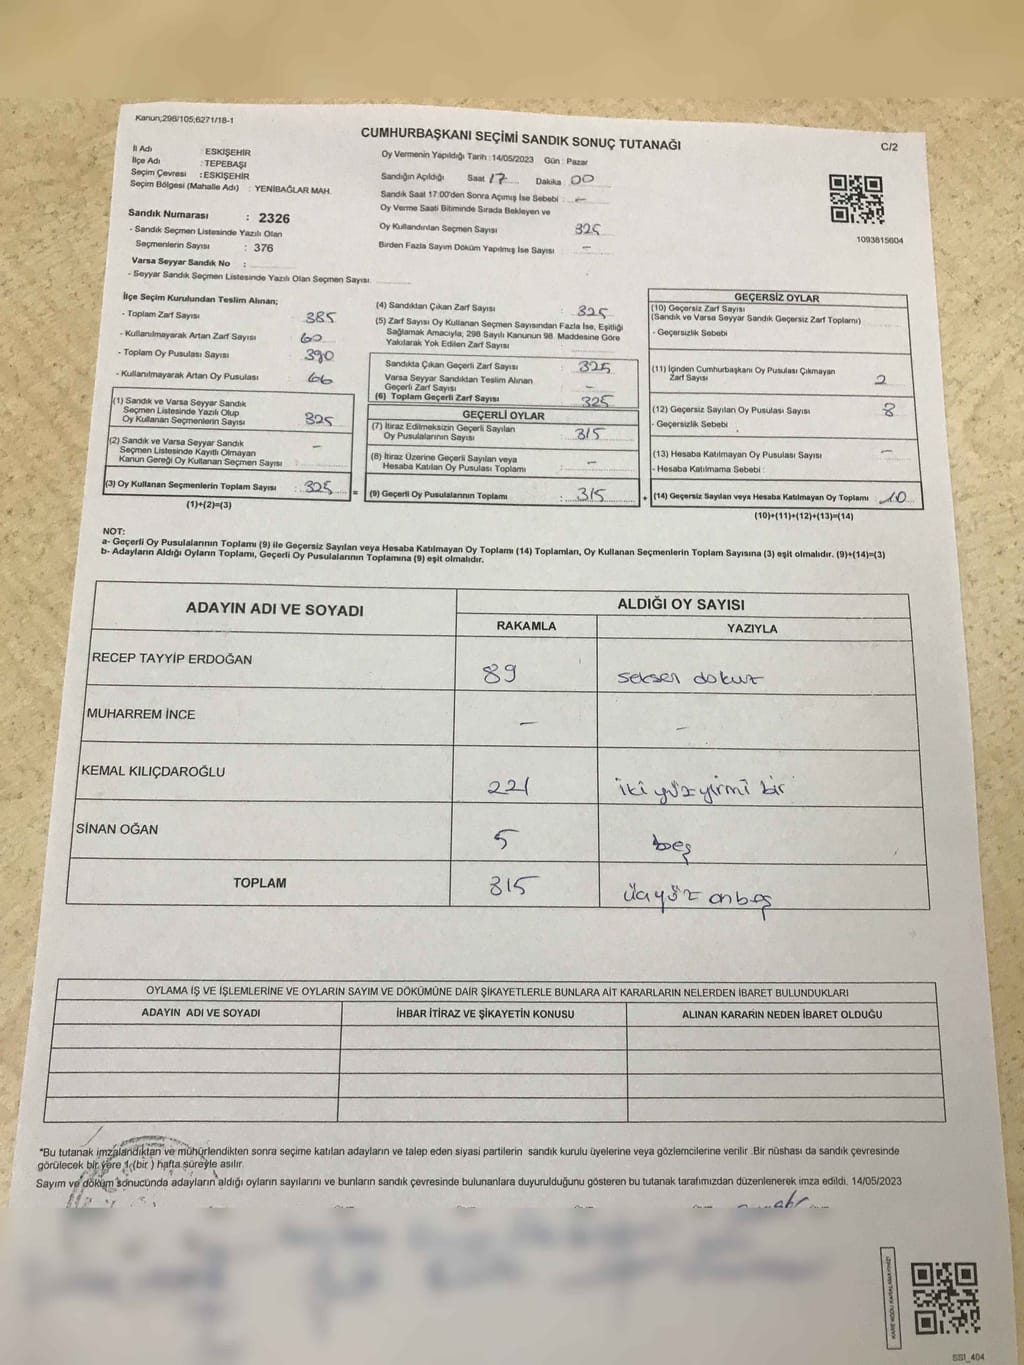 Kanun;298/105;6271/18-1
CUMHURBAŞKANI SEÇİMİ SANDIK SONUÇ TUTANAĞI
C/2
İl Adı : ESKİŞEHİR
İlçe Adı : TEPEBAŞI
Seçim Çevresi : ESKİŞEHİR
Seçim Bölgesi (Mahalle Adı) : YENİBAĞLAR MAH.
Sandık Numarası : 2326
- Sandık Seçmen Listesinde Yazılı Olan
Seçmenlerin Sayısı : 376
Varsa Seyyar Sandık No :
- Seyyar Sandık Seçmen Listesinde Yazılı Olan Seçmen Sayısı
Oy Vermenin Yapıldığı Tarih : 14/05/2023 Gün : Pazar
Sandığın Açıldığı Saat 17 Dakika 00
Sandık Saat 17:00'den Sonra Açımış İse Sebebi : -
Oy Verme Saati Bitiminde Sırada Bekleyen ve
Oy Kullandırılan Seçmen Sayısı 325
Birden Fazla Sayım Döküm Yapılmış İse Sayısı -
1093815604
İlçe Seçim Kurulundan Teslim Alınan;
- Toplam Zarf Sayısı : 385
- Kullanılmayarak Artan Zarf Sayısı : 60
- Toplam Oy Pusulası Sayısı : 390
- Kullanılmayarak Artan Oy Pusulası : 66
(1) Sandık ve Varsa Seyyar Sandık
Seçmen Listesinde Yazılı Olup
Oy Kullanan Seçmenlerin Sayısı : 325
(2) Sandık ve Varsa Seyyar Sandık
Seçmen Listesinde Kayıtlı Olmayan
Kanun Gereği Oy Kullanan Seçmen Sayısı : -
(3) Oy Kullanan Seçmenlerin Toplam Sayısı : 325
(1)+(2)=(3)
(4) Sandıktan Çıkan Zarf Sayısı : 325
(5) Zarf Sayısı Oy Kullanan Seçmen Sayısından Fazla İse, Eşitliği
Sağlamak Amacıyla, 298 Sayılı Kanunun 98. Maddesine Göre
Yakılarak Yok Edilen Zarf Sayısı :
Sandıkta Çıkan Geçerli Zarf Sayısı : 325
Varsa Seyyar Sandıktan Teslim Alınan
Geçerli Zarf Sayısı : -
(6) Toplam Geçerli Zarf Sayısı : 325
GEÇERLİ OYLAR
(7) İtiraz Edilmeksizin Geçerli Sayılan
Oy Pusulalarının Sayısı : 315
(8) İtiraz Üzerine Geçerli Sayılan veya
Hesaba Katılan Oy Pusulası Toplamı : -
= (9) Geçerli Oy Pusulalarının Toplamı : 315
GEÇERSİZ OYLAR
(10) Geçersiz Zarf Sayısı
(Sandık ve Varsa Seyyar Sandık Geçersiz Zarf Toplamı)
- Geçersizlik Sebebi
(11) İçinden Cumhurbaşkanı Oy Pusulası Çıkmayan
Zarf Sayısı 2
(12) Geçersiz Sayılan Oy Pusulası Sayısı 8
- Geçersizlik Sebebi :
(13) Hesaba Katılmayan Oy Pusulası Sayısı -
- Hesaba Katılmama Sebebi :
+ (14) Geçersiz Sayılan veya Hesaba Katılmayan Oy Toplamı 10
(10)+(11)+(12)+(13)=(14)
NOT:
a- Geçerli Oy Pusulalarının Toplamı (9) ile Geçersiz Sayılan veya Hesaba Katılmayan Oy Toplamı (14) Toplamları, Oy Kullanan Seçmenlerin Toplam Sayısına (3) eşit olmalıdır. (9)+(14)=(3)
b- Adayların Aldığı Oyların Toplamı, Geçerli Oy Pusulalarının Toplamına (9) eşit olmalıdır.
ADAYIN ADI VE SOYADI ALDIĞI OY SAYISI
RAKAMLA YAZIYLA
RECEP TAYYİP ERDOĞAN 89 seksen dokuz
MUHARREM İNCE - -
KEMAL KILIÇDAROĞLU 221 iki yüz yirmi bir
SİNAN OĞAN 5 beş
TOPLAM 315 üçyüz onbeş
OYLAMA İŞ VE İŞLEMLERİNE VE OYLARIN SAYIM VE DÖKÜMÜNE DAİR ŞİKAYETLERLE BUNLARA AİT KARARLARIN NELERDEN İBARET BULUNDUKLARI
ADAYIN ADI VE SOYADI İHBAR İTİRAZ VE ŞİKAYETİN KONUSU ALINAN KARARIN NEDEN İBARET OLDUĞU
*Bu tutanak imzalandıktan ve mühürlendikten sonra seçime katılan adayların ve talep eden siyasi partilerin sandık kurulu üyelerine veya gözlemcilerine verilir .Bir nüshası da sandık çevresinde
görülecek bir yere 1 (bir ) hafta süreyle asılır.
Sayım ve döküm sonucunda adayların aldığı oyların sayılarını ve bunların sandık çevresinde bulunanlara duyurulduğunu gösteren bu tutanak tarafımızdan düzenlenerek imza edildi. 14/05/2023
SSI_404